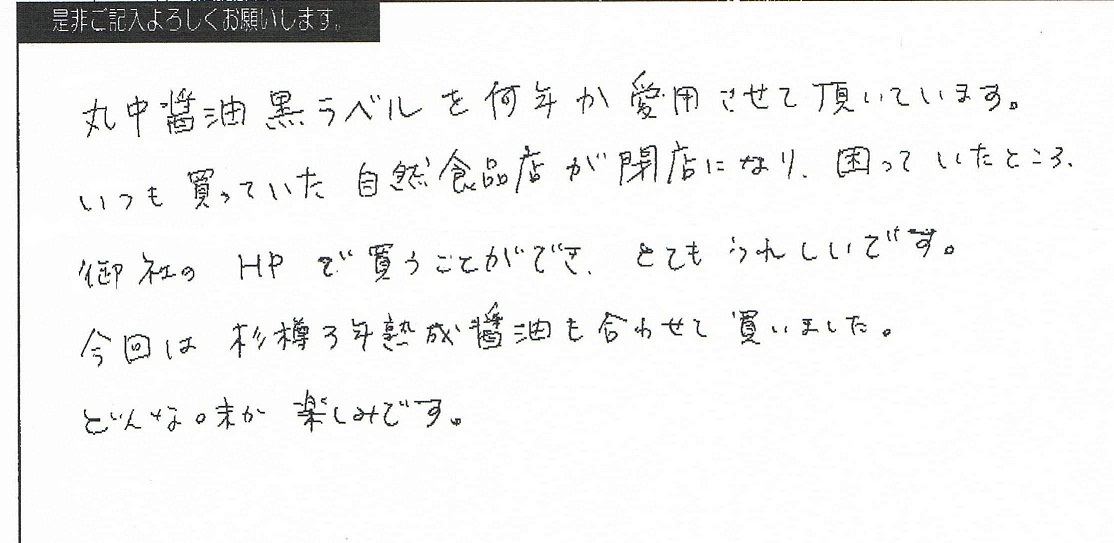 是非ご記入よろしくお願いします。
丸中醤油黒ラベルを何年か愛用させて頂いています。
いつも買っていた自然食品店が閉店になり、困っていたところ、
御社のHPで買うことができ、とてもうれしいです。
今回は杉樽3年熟成醤油も合わせて買いました。
どんな味か楽しみです。